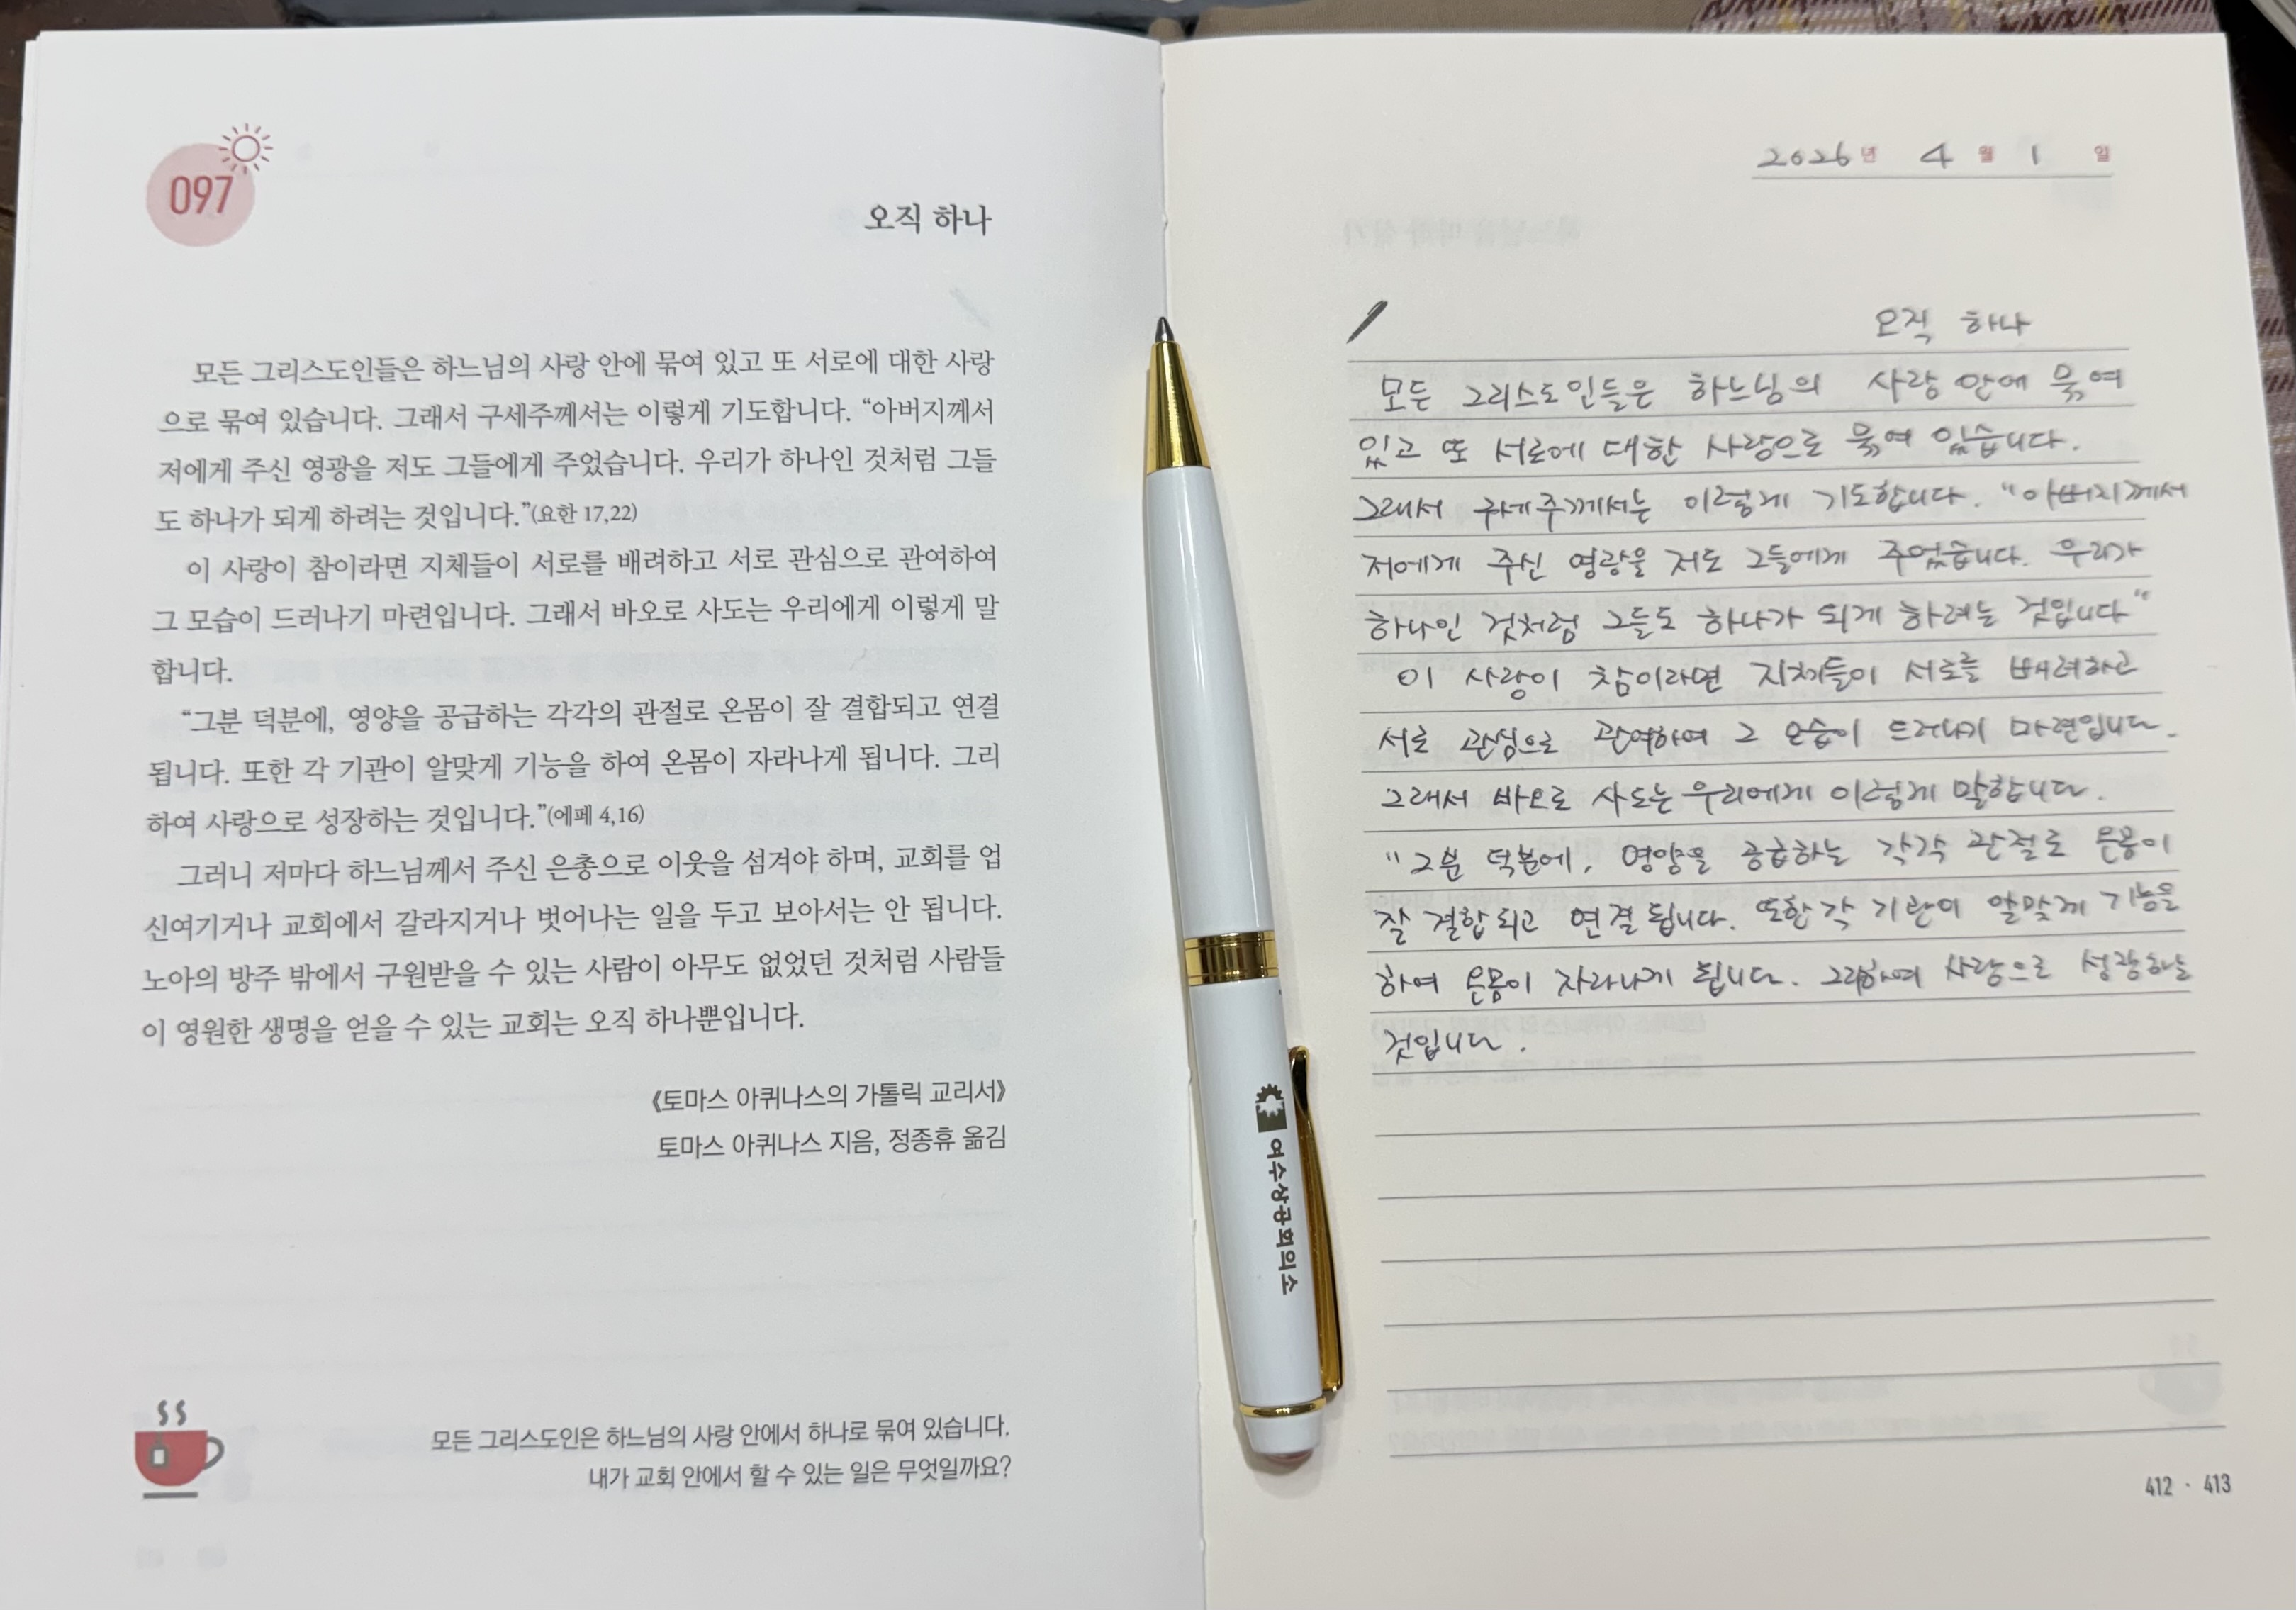 097
오직 하나
모든 그리스도인들은 하느님의 사랑 안에 묶여 있고 또 서로에 대한 사랑
으로 묶여 있습니다. 그래서 구세주께서는 이렇게 기도합니다. “아버지께서
저에게 주신 영광을 저도 그들에게 주었습니다. 우리가 하나인 것처럼 그들
도 하나가 되게 하려는 것입니다.”(요한 17,22)
이 사랑이 참이라면 지체들이 서로를 배려하고 서로 관심으로 관여하여
그 모습이 드러나기 마련입니다. 그래서 바오로 사도는 우리에게 이렇게 말
합니다.
“그분 덕분에, 영양을 공급하는 각각의 관절로 온몸이 잘 결합되고 연결
됩니다. 또한 각 기관이 알맞게 기능을 하여 온몸이 자라나게 됩니다. 그리
하여 사랑으로 성장하는 것입니다.”(에페 4,16)
그러니 저마다 하느님께서 주신 은총으로 이웃을 섬겨야 하며, 교회를 업
신여기거나 교회에서 갈라지거나 벗어나는 일을 두고 보아서는 안 됩니다.
노아의 방주 밖에서 구원받을 수 있는 사람이 아무도 없었던 것처럼 사람들
이 영원한 생명을 얻을 수 있는 교회는 오직 하나뿐입니다.
《토마스 아퀴나스의 가톨릭 교리서》
토마스 아퀴나스 지음, 정종휴 옮김
모든 그리스도인은 하느님의 사랑 안에서 하나로 묶여 있습니다.
내가 교회 안에서 할 수 있는 일은 무엇일까요?
여수상공회의소
2026년 4월 1일
오직 하나
모든 그리스도인들은 하느님의 사랑 안에 묶여
있고 또 서로에 대한 사랑으로 묶여 있습니다.
그래서 구세주께서는 이렇게 기도합니다. “아버지께서
저에게 주신 영광을 저도 그들에게 주었습니다. 우리가
하나인 것처럼 그들도 하나가 되게 하려는 것입니다”
이 사랑이 참이라면 지체들이 서로를 배려하고
서로 관심으로 관여하여 그 모습이 드러나기 마련입니다.
그래서 바오로 사도는 우리에게 이렇게 말합니다.
“그분 덕분에, 영양을 공급하는 각각 관절로 온몸이
잘 결합되고 연결됩니다. 또한 각 기관이 알맞게 기능을
하여 온몸이 자라나게 됩니다. 그리하여 사랑으로 성장하는
것입니다.
412 · 413